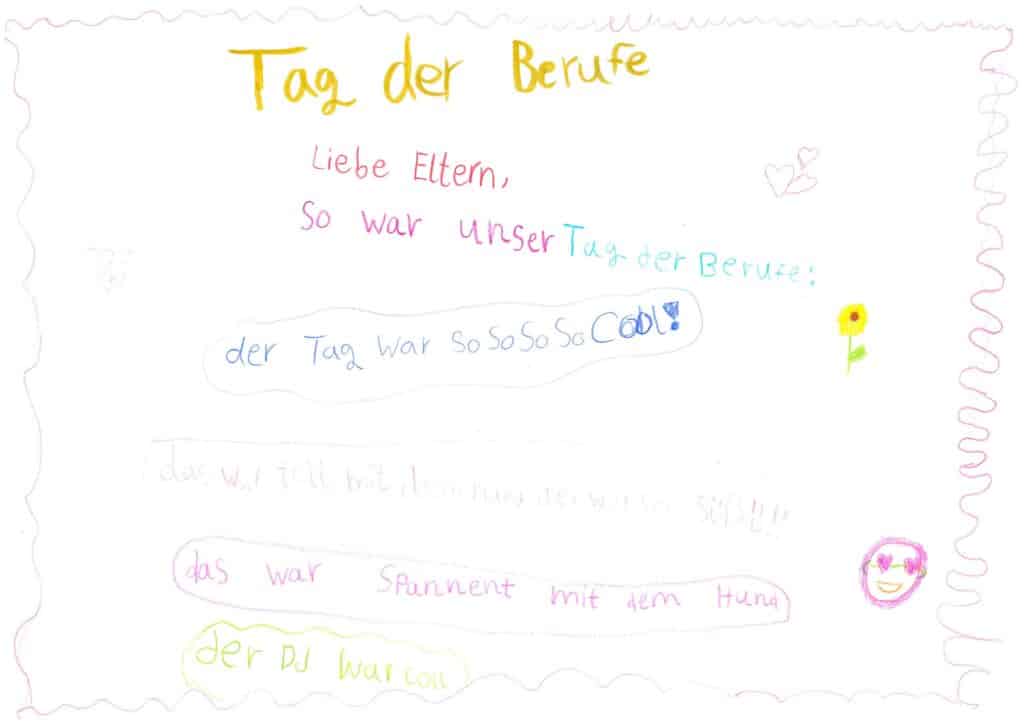 Tag der Berufe
Liebe Eltern,
So war unser Tag der Berufe:
der Tag war So So So So Cool!
das war toll mit dem der war so süß!!!!
das war Spannent mit dem Hund
der DJ war cool